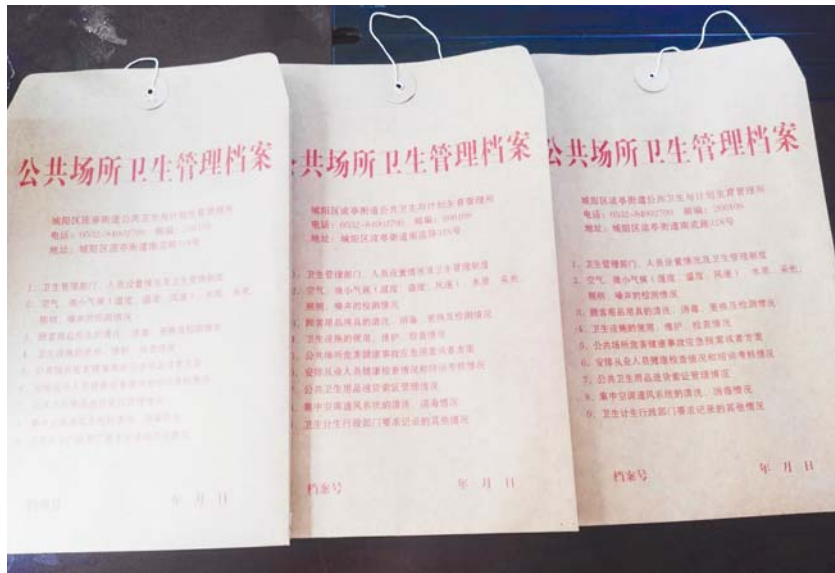 公共场所卫生管理档案
城阳区流亭街道公共卫生与计划生育管理所
电话：0532-84902700 邮编：266109
1、卫生管理部门、人员设置情况及卫生管理制度
2、空气、微小气候（湿度、温度、风速）、水质、采光、
照明、噪声的检测情况
3、顾客用品用具的清洗、消毒、更换及检测情况
档案号 年 月 日
共场所卫生管理档案
城阳区流亭街道公共卫生与计划生育管理所
电话：0532-84902700 邮编：266109
卫生管理部门、人员设置情况及卫生管理制度
空气、微小气候（湿度、温度、风速）、水质、采光、
照明、噪声的检测情况
顾客用品用具的清洗、消毒、更换及检测情况
卫生设施的使用、维护、检查情况
公共场所危害健康事故应急预案或者方案
安排从业人员健康检查情况和培训考核情况
公共卫生用品进货索证管理情况
集中空调通风系统的清洗、消毒情况
卫生计生行政部门要求记录的其他情况
档案号 年 月 日
公共场所卫生管理档案
城阳区流亭街道公共卫生与计划生育管理所
电话：0532-84902700 邮编：266109
1、卫生管理部门、人员设置情况及卫生管理制度
2、空气、微小气候（湿度、温度、风速）、水质、采光、
照明、噪声的检测情况
3、顾客用品用具的清洗、消毒、更换及检测情况
4、卫生设施的使用、维护、检查情况
5、公共场所危害健康事故应急预案或者方案
6、安排从业人员健康检查情况和培训考核情况
7、公共卫生用品进货索证管理情况
8、集中空调通风系统的清洗、消毒情况
9、卫生计生行政部门要求记录的其他情况
档案号 年 月 日